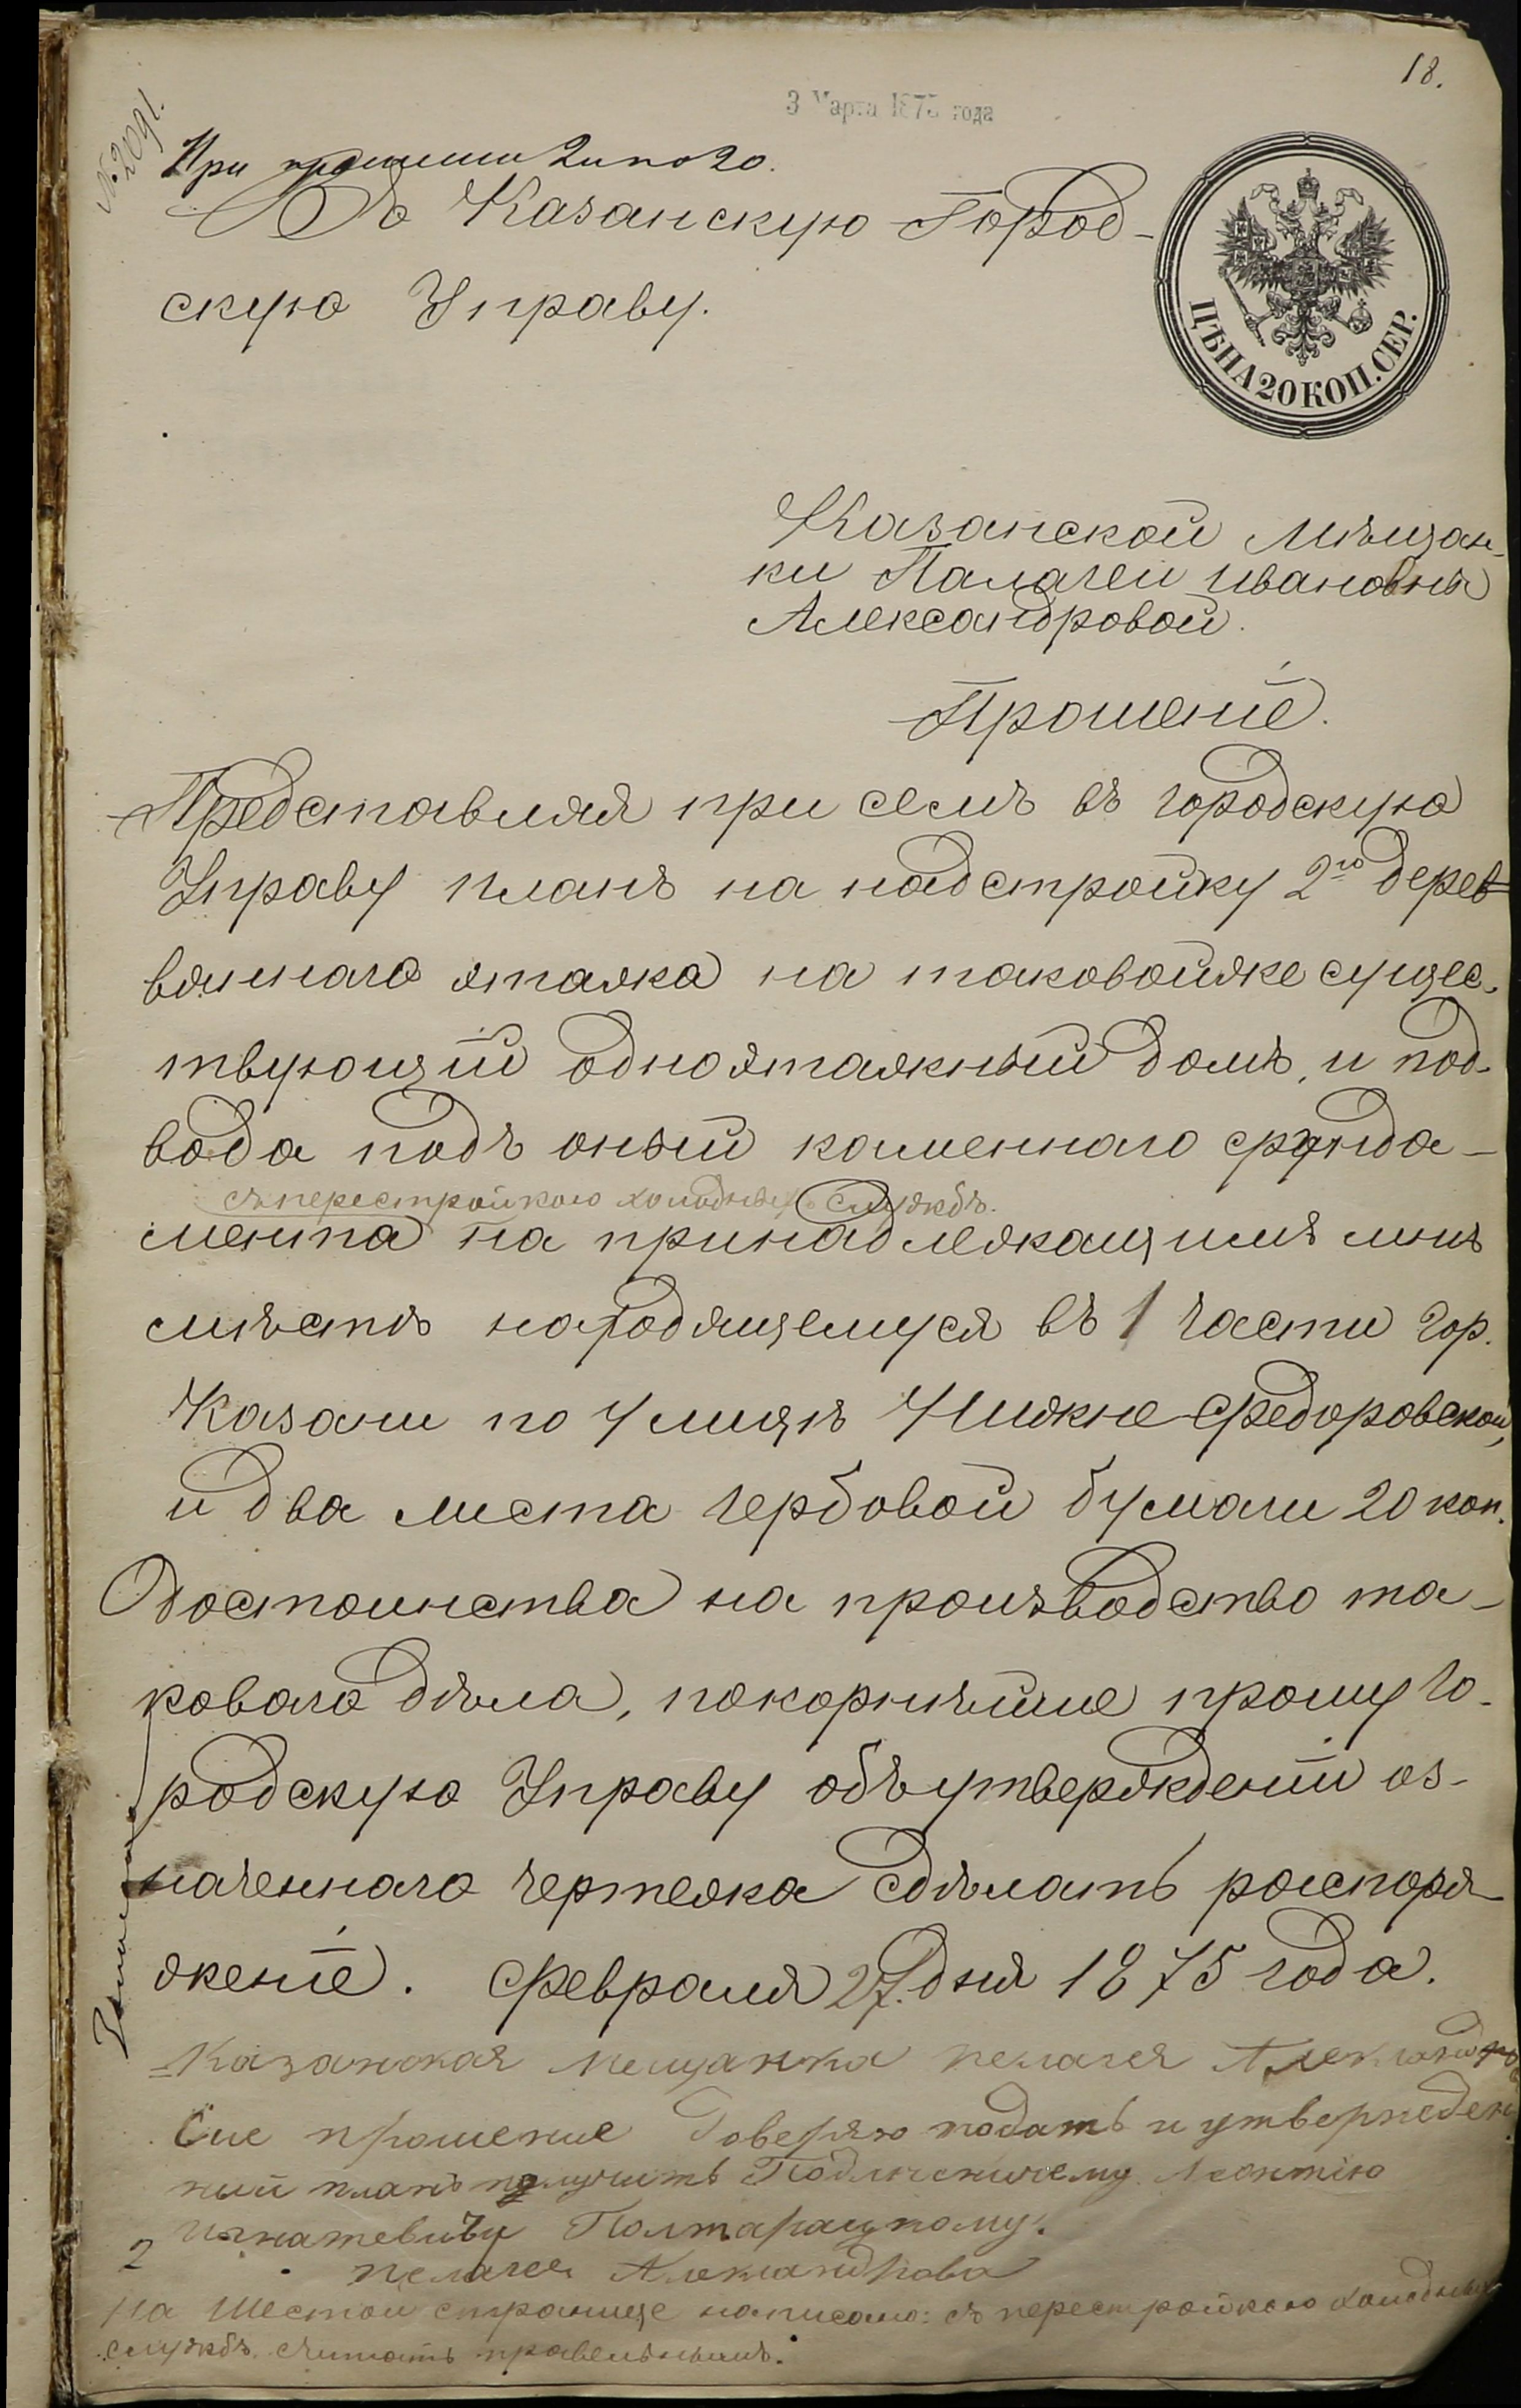 18.
3 Марта 1875 года
№ 2091.
При прошении 2 л по 20.
Въ Казанскую Город-
скую Управу.
ЦѢНА 20 КОП. СЕР.
Казанской мѣщан-
ки Палагеи Ивановны
Александровой.
Прошеніе.
Представляя при семъ въ городскую
Управу планъ на надстройку 2го дерев-
вяннаго этажа на таковойже сущес-
твующій одноэтажный домъ, и под-
вода подъ оный каменнаго фунда-
съ перестройкою холодныхъ службъ.
мента на принадлежащимъ мнѣ
мѣстѣ находящемуся въ 1 части гор.
Казани по улицѣ Нижне-Федоровской,
и два листа гербовой бумаги 20 коп.
достоинства на производство та-
коваго дѣла, покорнѣйше прошу Го-
родскую Управу объ утвержденіи оз-
наченнаго чертежа сдѣлать распоря-
женіе. Февраля 27. дня 1875 года.
Казанская мещанка пелагея Александрова
Сие прошение доверяю подать и утвержден
ный планъ получить Подлекичему Леонтію
Игнатевичу Полтарацкому.
2
пелагея Александрова
На шестой странице написано: съ перестройкою холодныхъ
службъ. считать правельнымъ.